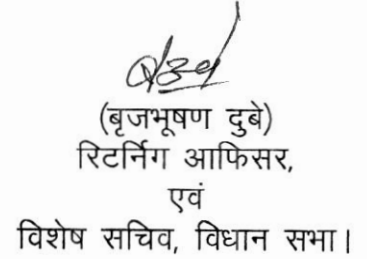 (बृजभूषण दुबे)
रिटर्निंग आफिसर,
एवं
विशेष सचिव, विधान सभा।